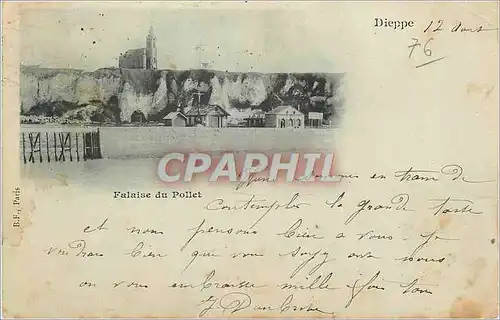 Dieppe
12 Aout
76
Falaise du Pollet
CPAPHIL
B.F., Paris
Nous sommes en train de
contempler la grande tasse
et nous pensons bien a vous je
voudrais bien que vous soyez avec nous
on vous embrasse mille fois tous